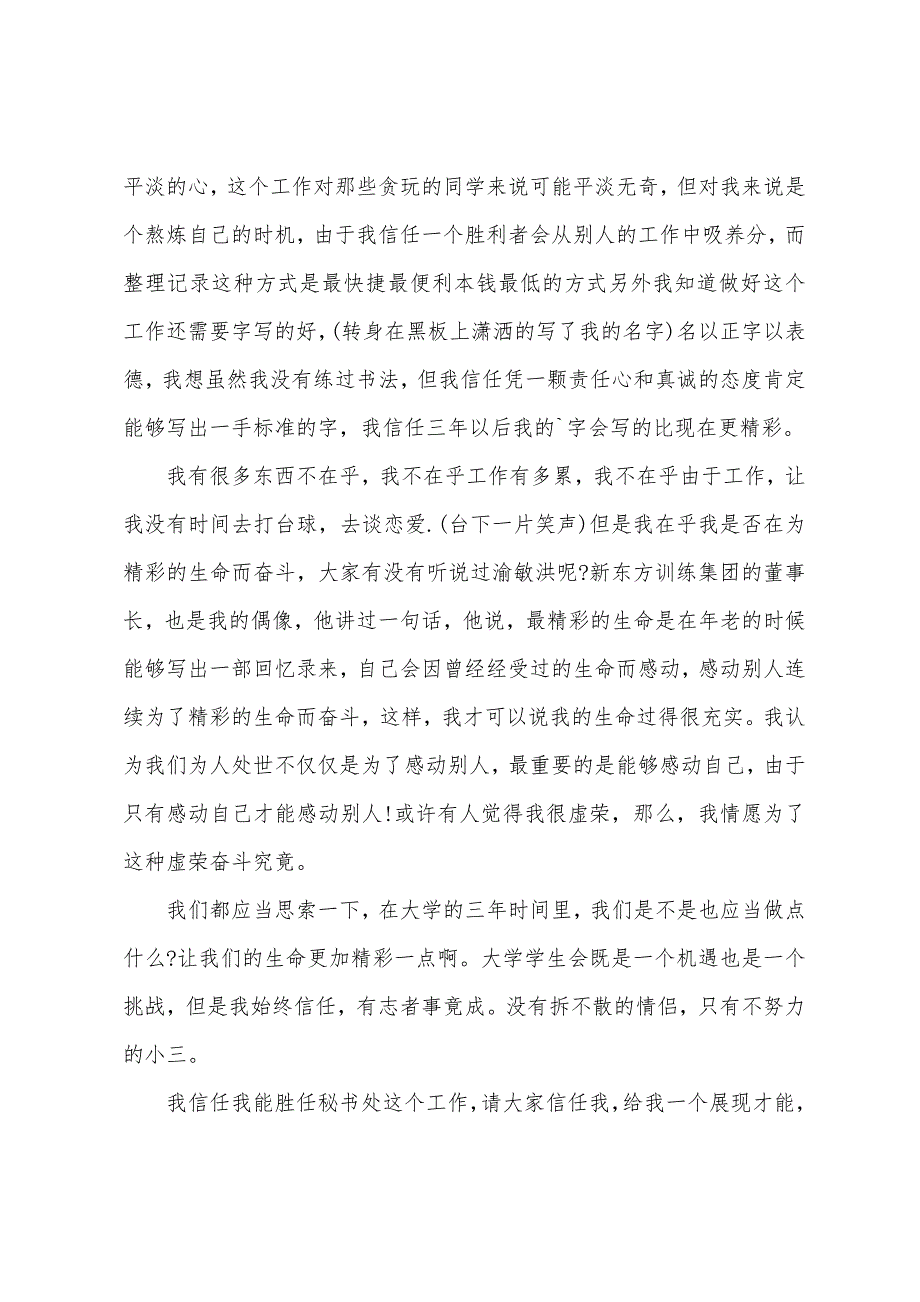 平淡的心，这个工作对那些贪玩的同学来说可能平淡无奇，但对我来说是
个熬炼自己的时机，由于我信任一个胜利者会从别人的工作中吸养分，而
整理记录这种方式是最快捷最便利本钱最低的方式另外我知道做好这个
工作还需要字写的好，(转身在黑板上潇洒的写了我的名字)名以正字以表
德，我想虽然我没有练过书法，但我信任凭一颗责任心和真诚的态度肯定
能够写出一手标准的字，我信任三年以后我的`字会写的比现在更精彩。
我有很多东西不在乎，我不在乎工作有多累，我不在乎由于工作，让
我没有时间去打台球，去谈恋爱.(台下一片笑声)但是我在乎我是否在为
精彩的生命而奋斗，大家有没有听说过渝敏洪呢?新东方训练集团的董事
长，也是我的偶像，他讲过一句话，他说，最精彩的生命是在年老的时候
能够写出一部回忆录来，自己会因曾经经受过的生命而感动，感动别人连
续为了精彩的生命而奋斗，这样，我才可以说我的生命过得很充实。我认
为我们为人处世不仅仅是为了感动别人，最重要的是能够感动自己，由于
只有感动自己才能感动别人!或许有人觉得我很虚荣，那么，我情愿为了
这种虚荣奋斗究竟。
我们都应当思索一下，在大学的三年时间里，我们是不是也应当做点
什么?让我们的生命更加精彩一点啊。大学学生会既是一个机遇也是一个
挑战，但是我始终信任，有志者事竟成。没有拆不散的情侣，只有不努力
的小三。
我信任我能胜任秘书处这个工作，请大家信任我，给我一个展现才能，